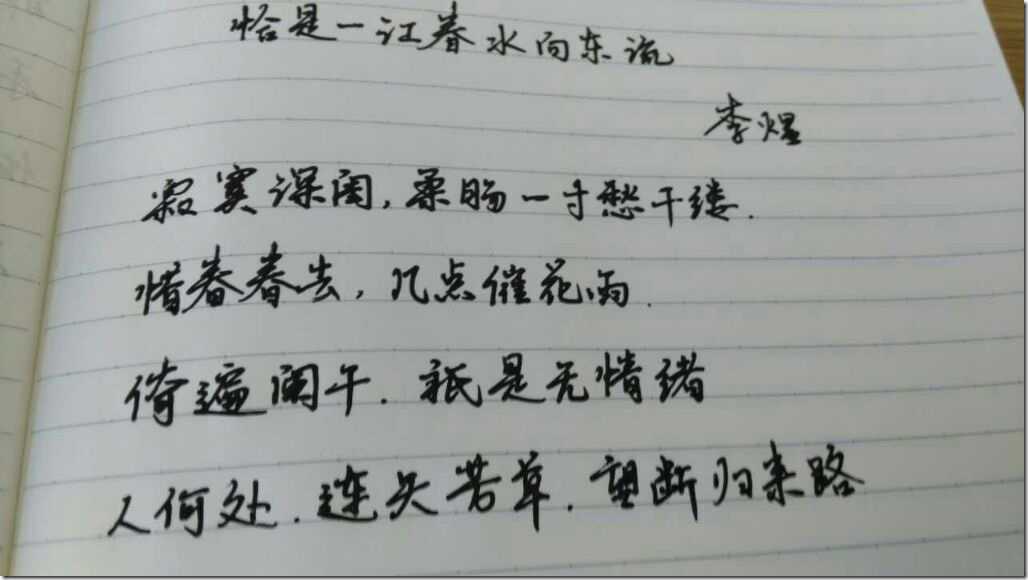 恰是一江春水向东流
李煜
寂寞深闺,柔肠一寸愁千缕.
惜春春去,几点催花雨.
倚遍阑干.祇是无情绪
人何处.连天芳草.望断归来路